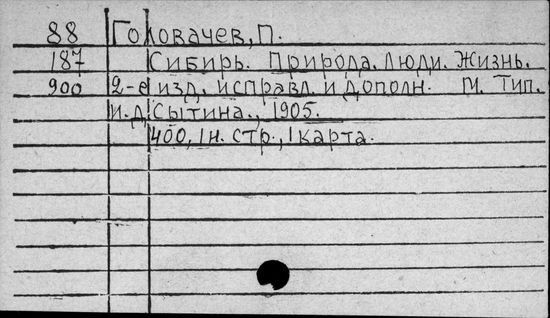 88 Головачев, П.
187 Сибирь. Природа. Люди. Жизнь.
900 2-е изд. исправл. и дополн. М. Тип.
И.Д. Сытина., 1905.
400, 1 н. стр., 1 карта.